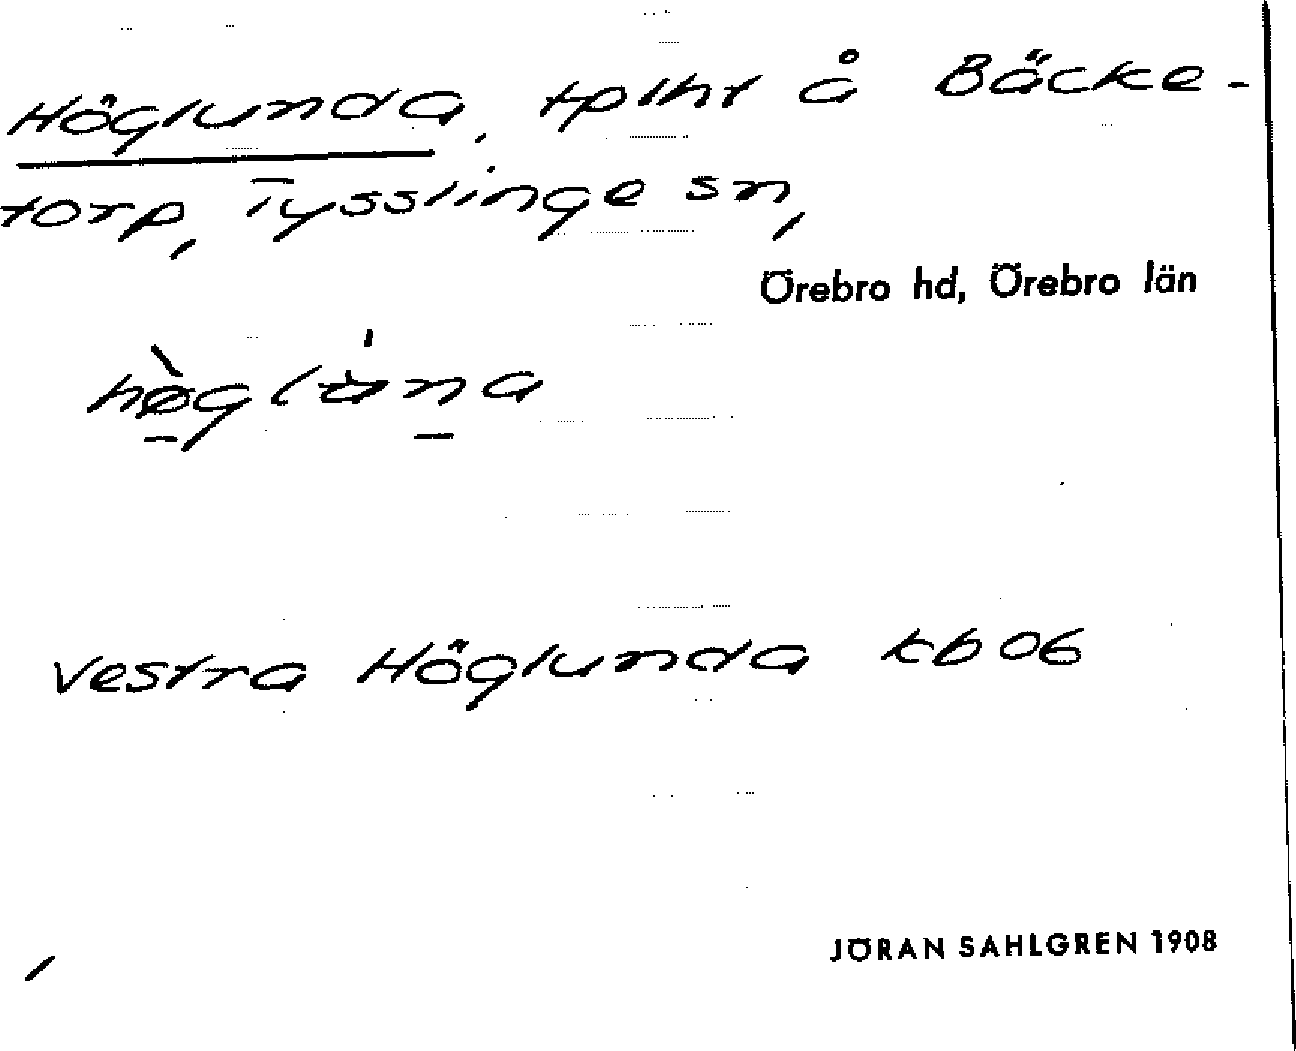 Höglunda, tplht å Bäcke-
torp, Tysslinge sn,
Örebro hd, Örebro län
Vestra Höglunda kb 06
JÖRAN SAHLGREN 1908